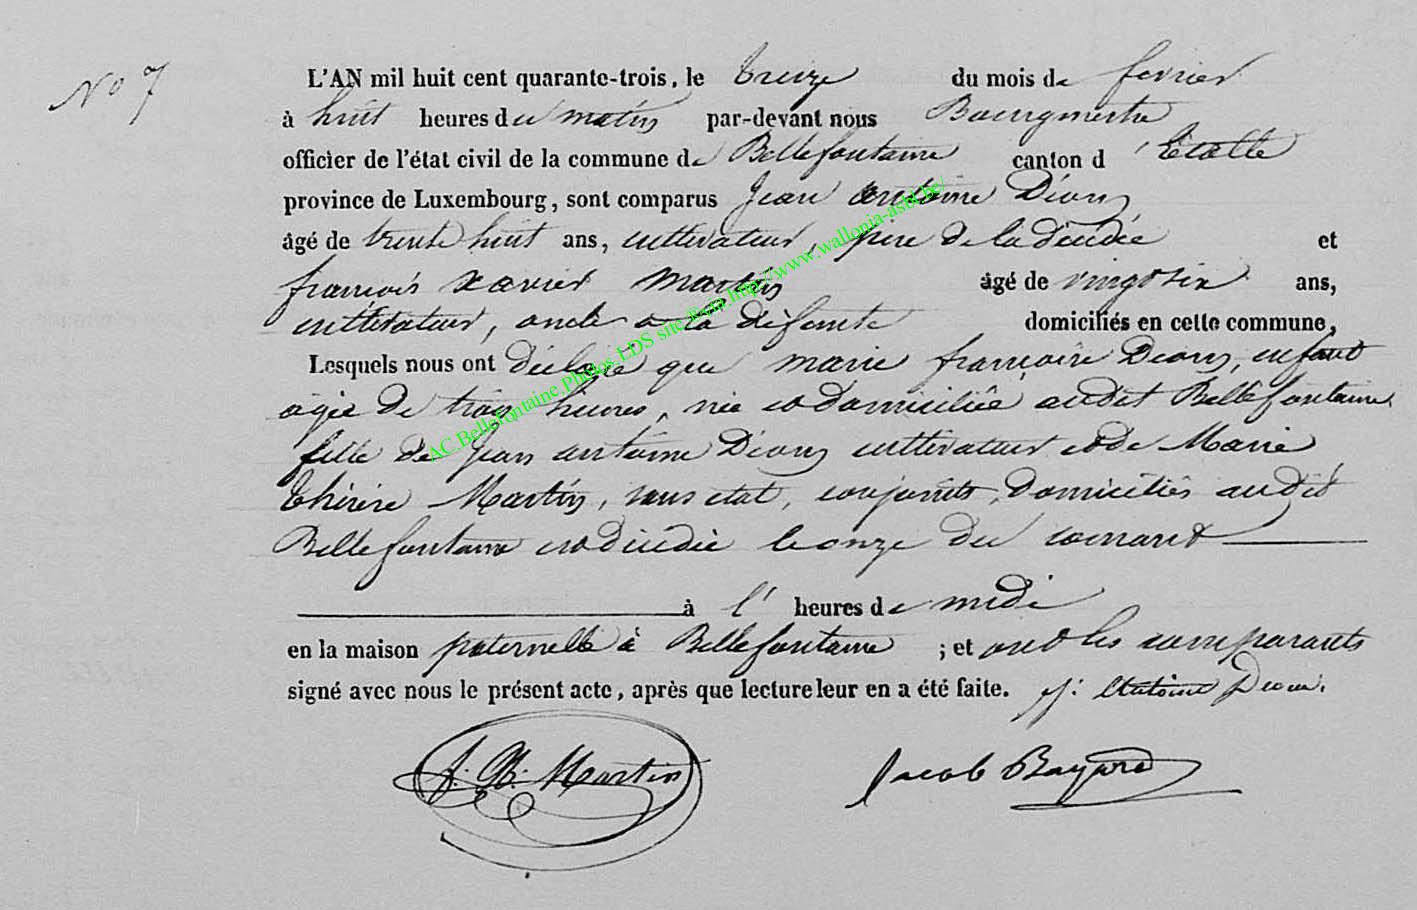 No 7
L'AN mil huit cent quarante-trois, le treize du mois de fevrier
à huit heures du matin par-devant nous Bourgmestre
officier de l'état civil de la commune de Bellefontaine canton d'Etalle
province de Luxembourg, sont comparus Jean antoine Dion
âgé de trente huit ans, cultivateur, père de la décédée et
francois xavier Martin âgé de vingt six ans,
cultivateur, oncle a la défunte domiciliés en cette commune,
Lesquels nous ont déclaré que marie francoise Dion, enfant
agée de trois heures, née et domiciliée audit Bellefontaine
fille de Jean antoine Dion cultivateur et de Marie
thérèse Martin, sans etat, conjoints, domiciliés audit
Bellefontaine est décédée le onze du courant
à l' heures de midi
en la maison paternelle à Bellefontaine ; et ont les comparants
signé avec nous le présent acte, après que lecture leur en a été faite. J: Antoine Dion.
Martin Jacob Bayard
AC Bellefontaine Photos LDS site http://www.wallonia-asbl.be/